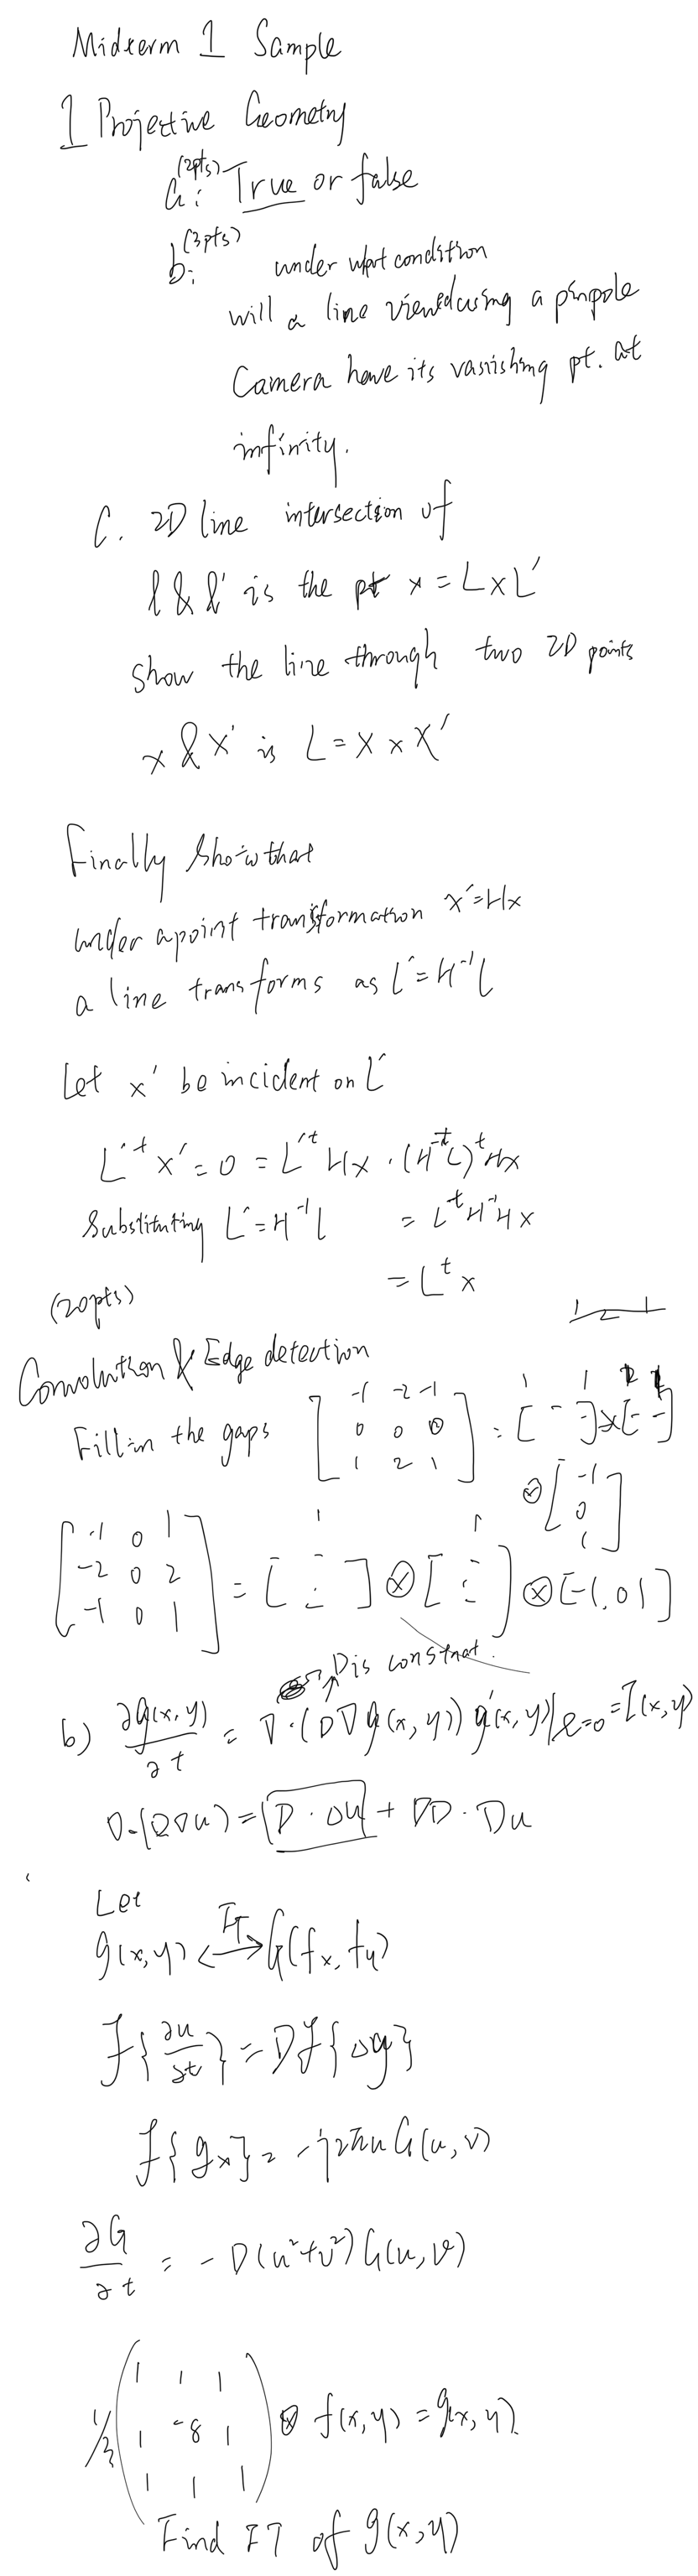 Midterm 1 Sample
1 Projective Geometry
(2pts)
a: True or false
(3pts)
b: under what condition
will a line viewed using a pinpole
Camera have its vanishing pt. at
infinity.
C. 2D line intersection of
l & l' is the pt x = L x L'
show the line through two 2D points
x & x' is L = X x X'
Finally show that
under a point transformation x' = Hx
a line transforms as L' = H⁻¹ l
Let x' be incident on L'
L'ᵗ x' = 0 = L'ᵗ Hx · (H⁻ᵗ L)ᵗ Hx
Substituting L' = H⁻¹ l = Lᵗ H⁻¹ H x
= Lᵗ x
(20pts)
1 2 1
Convolution & Edge detection
Fill in the gaps [-1 -2 -1
0 0 0
1 2 1] = [1 1] x [1 1]
⊗ [-1
0
1]
[-1 0 1
-2 0 2
-1 0 1] = [1 ] ⊗ [1 ] ⊗ [-1, 0 1]
D is constnat.
b) ∂g(x,y)/∂t = ∇·(D∇g(x,y)) g(x,y)|t=0 = I(x,y)
∇·(D∇u) = D·Δu + ∇D·∇u
Let
g(x,y) <-FT-> G(fx, fy)
F{∂u/∂t} = D F{Δg}
F{gx} = -j2πu G(u,v)
∂G/∂t = -D(u²+v²) G(u,v)
1/3 (1 1 1
1 -8 1
1 1 1) ⊗ f(x,y) = g(x,y)
Find FT of g(x,y)